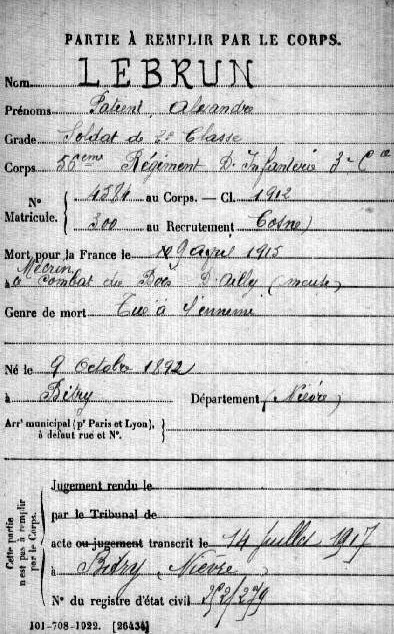 PARTIE À REMPLIR PAR LE CORPS.
Nom LEBRUN
Prénoms Alexandre
Grade Soldat de 2e Classe
Corps 56eme Régiment D'Infanterie 3e Cie
N° Matricule. { 4574 au Corps. — Cl. 1912
300 au Recrutement Cosne
Mort pour la France le 9 avril 1915
à Mécrin combat du Bois D'ailly (meuse)
Genre de mort Tué à l'ennemi
Né le 9 Octobre 1892
à Bitry Département (Nièvre)
Arrt municipal (pr Paris et Lyon), à défaut rue et N°. }
Cette partie n'est pas à remplir par le Corps. {
Jugement rendu le
par le Tribunal de
acte ou jugement transcrit le 14 juillet 1917
à Bitry (Nièvre)
N° du registre d'état civil 252/279
101-708-1922. [26434]